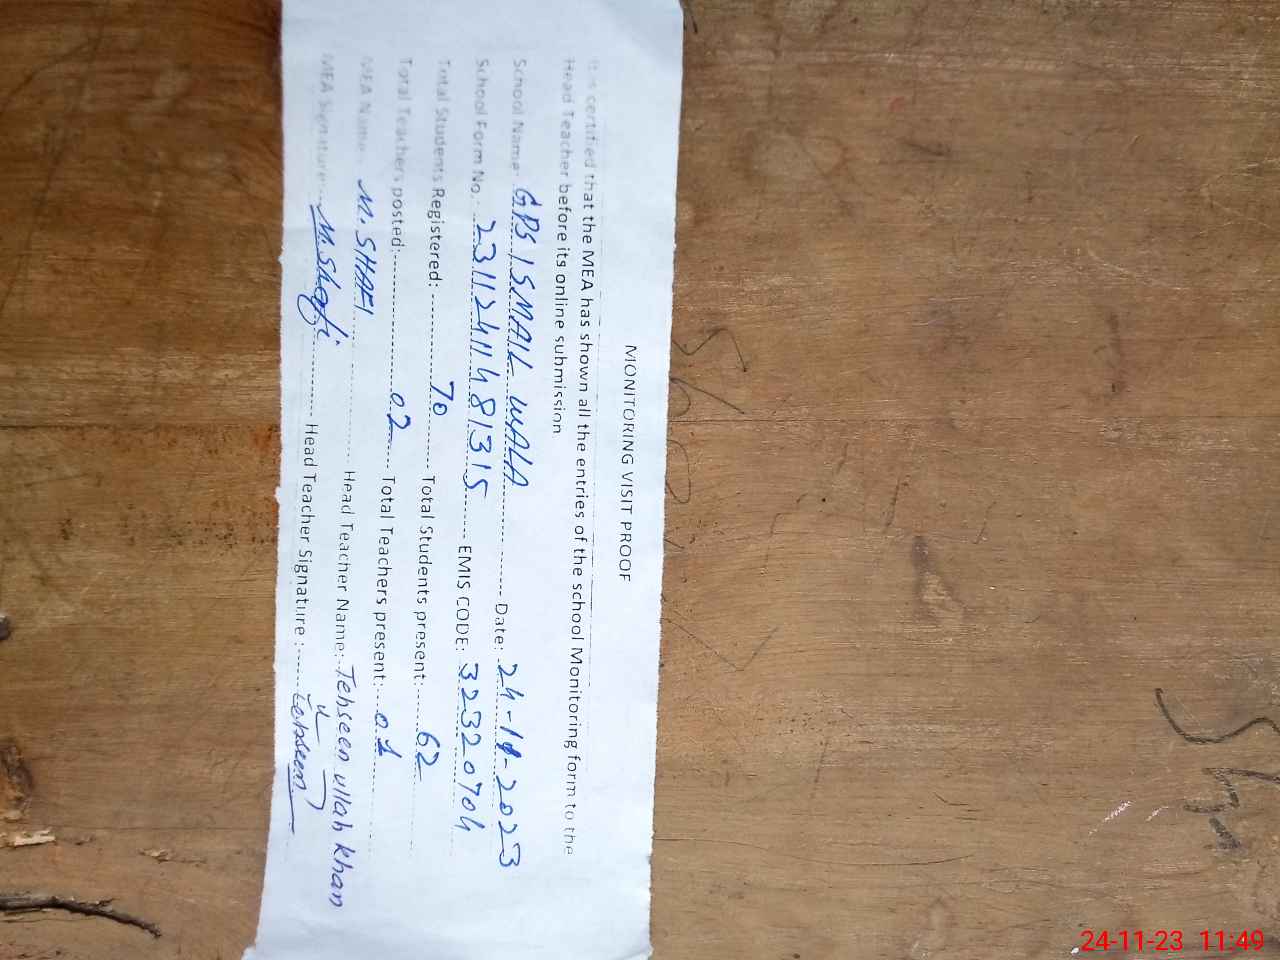 MONITORING VISIT PROOF
It is certified that the MEA has shown all the entries of the school Monitoring form to the
Head Teacher before its online submission
School Name: GPS ISMAIL WALA Date: 24-11-2023
School Form No.: 23112411481315 EMIS CODE: 32320704
Total Students Registered: 70 Total Students present: 62
Total Teachers posted: 02 Total Teachers present: 01
MEA Name: M. SHAFI Head Teacher Name: Tehseen ullah khan
MEA Signature: M. Shafi Head Teacher Signature : Tehseen
24-11-23 11:49